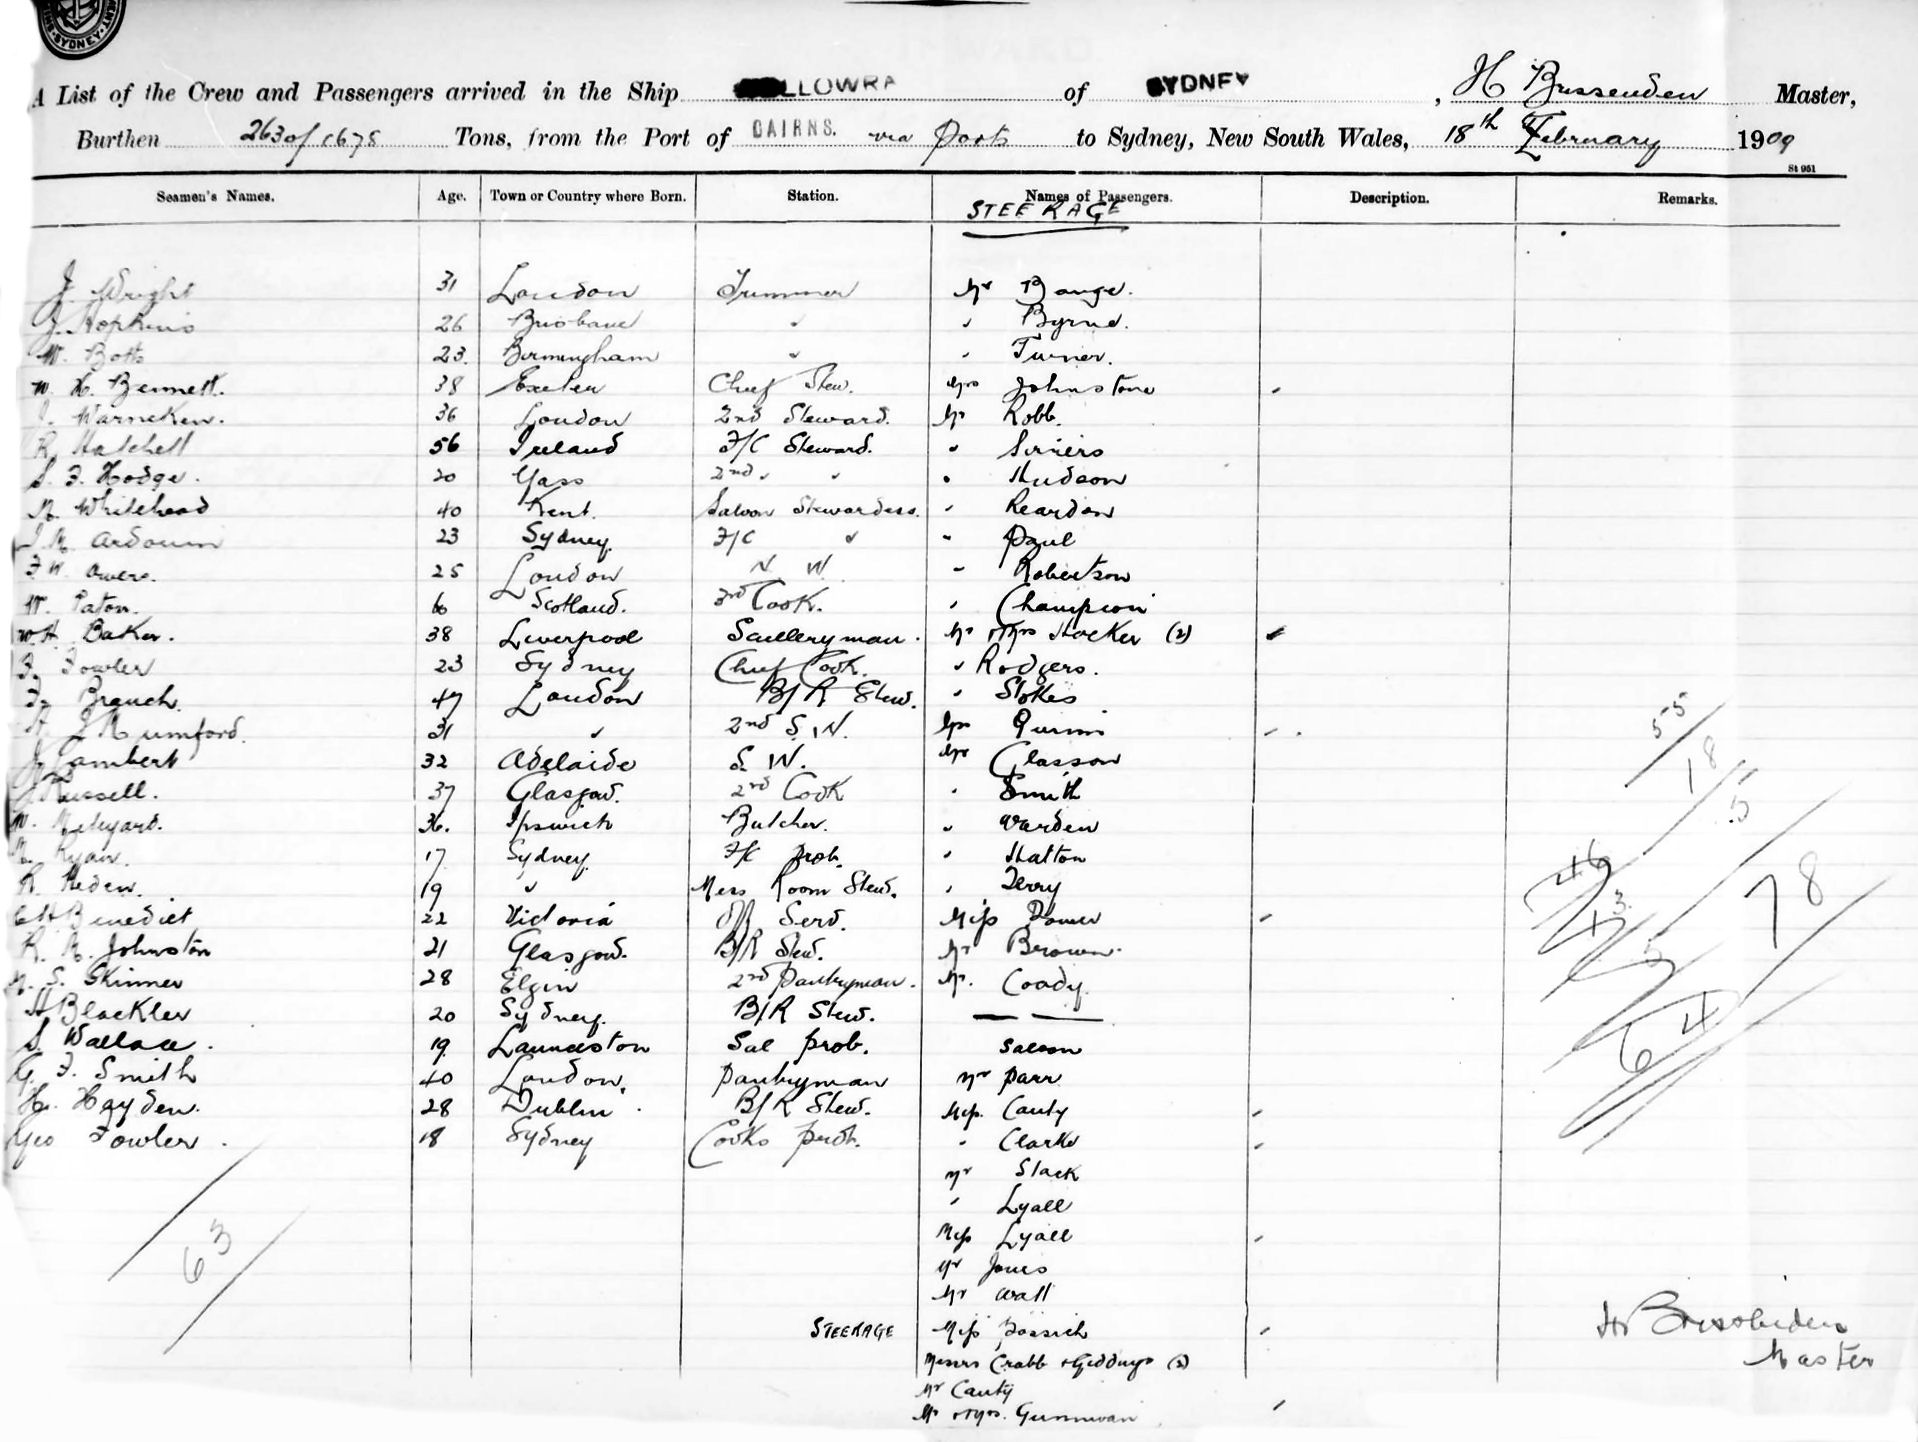 SYDNEY
A List of the Crew and Passengers arrived in the Ship LLOWRA of SYDNEY, H Brissenden Master,
Burthen 2630/1675 Tons, from the Port of CAIRNS. via Ports to Sydney, New South Wales, 18th February 1909
St 951
Seamen's Names. Age. Town or Country where Born. Station. Names of Passengers. Description. Remarks.
STEERAGE
J. Wright 31 London Trimmer Mr Bange.
J. Hopkins 26 Brisbane " " Byrne.
W. Botts 23. Birmingham " " Turner.
W. H. Bennett. 38 Exeter Chief Stew. Mrs Johnstone
J. Warneken. 36 London 2nd Steward. Mr Robb.
R. Hatchell 56 Ireland F/C Steward. "
S. F. Hodge. 20 Yass 2nd " " " Hudson
M. Whitehead 40 Kent. Saloon Stewardess. " Reardon
J. M. Ardouin 23 Sydney. F/C " " Paul
F. W. Owers. 25 London N. W. " Robertson
W. Paton. Scotland. 3rd Cook. " Champion
W. H. Baker. 38 Liverpool Sculleryman. Mr & Mrs Hocker (2)
F. Fowler 23 Sydney Chief Cook. " Rodgers.
F. Branch. 47 London B/R Stew. " Stokes
J. Rumford. 31 " 2nd S. W. Mrs Quinn
J. Lambert 32 Adelaide S. W. Mr Glasson
J. Russell. 37 Glasgow. 2nd Cook " Smith
W. 36. Ipswich Butcher. " Warden
M. Ryan. 17 Sydney. F/C Prob. " Hatton
R. Heden. 19 " Mess Room Stew. " Terry
C H Benedict 22 Victoria Serv. Miss Power
R. M. Johnston 21 Glasgow. B/R Stew. Mr Brown.
M. S. Skinner 28 Elgin 2nd Pantryman. Mr. Coady.
H Blackler 20 Sydney. B/R Stew.
S. Wallace. 19. Launceston Sal Prob. Saloon
G. F. Smith 40 London. Pantryman Mr Parr
H. Hayden. 28 Dublin. B/R Stew. Miss. Cauty
Geo Fowler. 18 Sydney Cooks prob. " Clarke
Mr Slack
" Lyall
Miss Lyall
Mr Jones
Mr Watt
STEERAGE Miss
Messrs Crabb & Giddings (2)
Mr Cauty
Mr & Mrs.
63
55
18
5
46
13
5
64
78
H Brissenden
Master